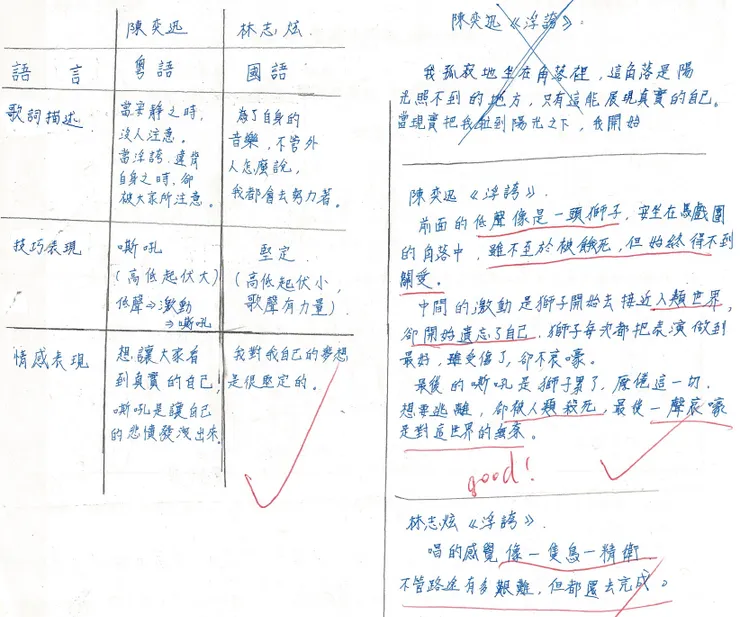 陳奕迅 林志炫
語言 粵語 國語
歌詞描述
當安靜之時,
沒人注意。
當浮誇、違背
自身之時,卻
被大家所注意。
為了自身的
音樂,不管外
人怎麼說,
我都會去努力著。
技巧表現
嘶吼
(高低起伏大)
低聲⇒激動
⇒嘶吼
堅定
(高低起伏小,
歌聲有力量)
情感表現
想讓大家看
到真實的自己!
嘶吼是讓自己
的悲憤發洩出來
我對我自己的夢想
是很堅定的。
陳奕迅《浮誇》:
我孤寂地坐在角落裡,這角落是陽
光照不到的地方,只有這能展現真實的自己。
當現實把我拉到陽光之下,我開始
陳奕迅《浮誇》.
前面的低聲像是一頭獅子,安坐在馬戲團
的角落中,雖不至於被餓死,但始終得不到
關愛。
中間的激動是獅子開始去接近人類世界,
卻開始遺忘了自己,獅子每次都把表演做到
最好,雖受傷了,卻不哀嚎。
最後的嘶吼是獅子累了,厭倦這一切.
想要逃離,卻被人類殺死,最後一聲哀嚎
是對這世界的無奈。
good!
林志炫《浮誇》.
唱的感覺像一隻鳥一精衛
不管路途有多艱難,但都要去完成。